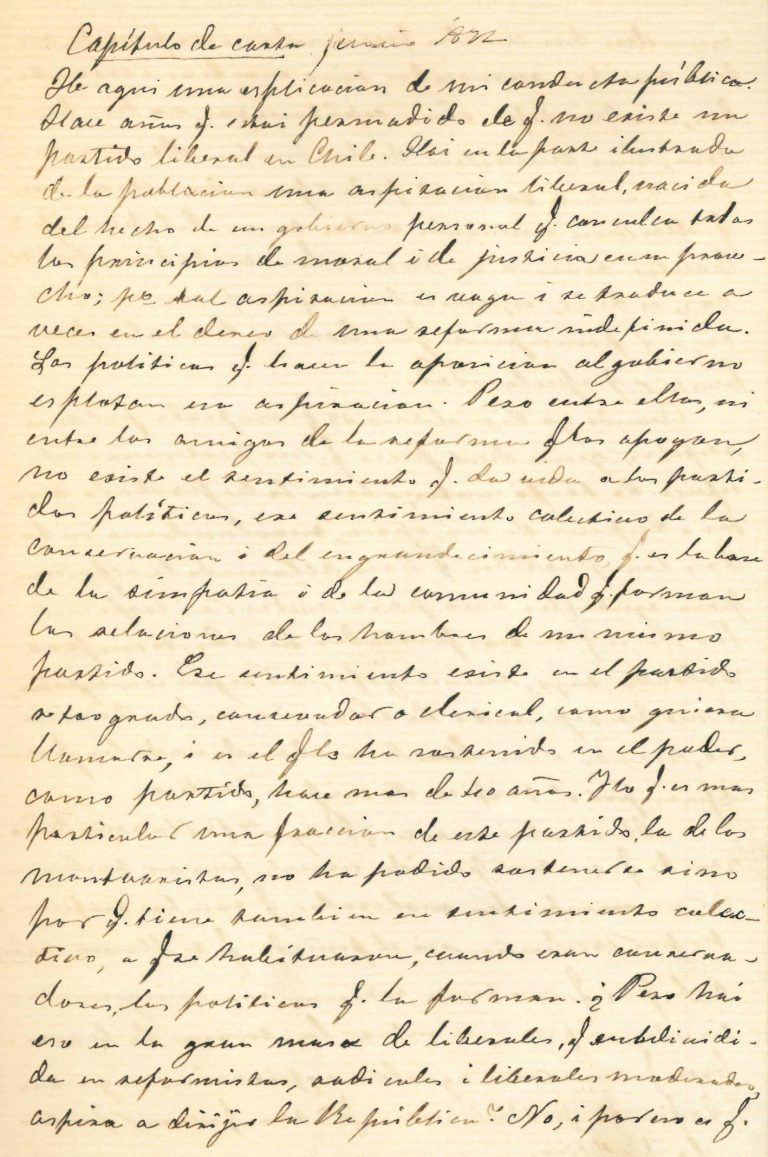 Capítulo de carta junio
He aqui una esplicacion de mi conducta pública.
Hace años q. estoi persuadido de q. no existe un
partido liberal en Chile. Hai en la parte ilustrada
de la poblacion una aspiracion liberal, nacida
del hecho de un gobierno personal q. conculca todos
los principios de moral i de justicia en su prove-
cho; po. tal aspiracion es vaga i se traduce a
veces en el deseo de una reforma indefinida.
Los politicos q. hacen la oposicion al gobierno
esplotan esa aspiracion. Pero entre ellos, ni
entre los amigos de la reforma q. los apoyan,
no existe el sentimiento q. da vida a los parti-
dos políticos, ese sentimiento colectivo de la
conservacion i del engrandecimiento, q. es la base
de la simpatia i de la comunidad q. forman
las relaciones de los hombres de un mismo
partido. Ese sentimiento existe en el partido
retrogrado, conservador o clerical, como quiera
llamarse, i es el q. lo ha sostenido en el poder,
como partido, hace mas de 40 años. I lo q. es mas
particular una fraccion de este partido, la de los
monttvaristas, no ha podido sostenerse sino
por q. tiene tambien ese sentimiento colec-
tivo, a q. se habituaron, cuando eran conserva-
dores, los politicos q. la forman. ¿Pero hai
eso en la gran masa de liberales, q. subdividi-
da en reformistas, radicales i liberales moderados,
aspira a dirijir la República? No, i por eso es q.